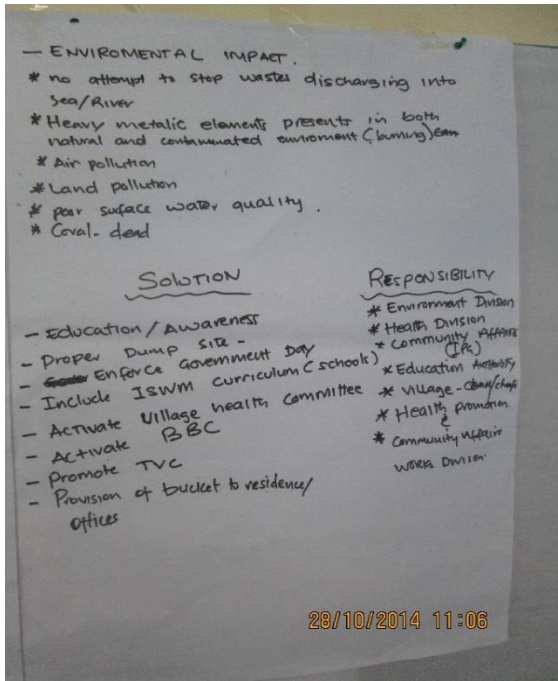 — ENVIROMENTAL IMPACT.
* no attempt to stop wastes discharging into
Sea/River
* Heavy metalic elements presents in both
natural and contaminated enviroment (burning)
* Air pollution
* Land pollution
* poor surface water quality.
* Coral- dead
SOLUTION
- Education/Awareness
- Proper Dump site -
- Enforce Government Day
- Include ISWM curriculum (schools)
- Activate Village health committee
- Activate BBC
- Promote TVC
- Provision of bucket to residence/
offices
RESPONSIBILITY
* Environment Division
* Health Division
* Community Affairs
* Education Authority
* Village -
* Health Promotion
&
* Community Affairs
WORKS Division
28/10/2014 11:06